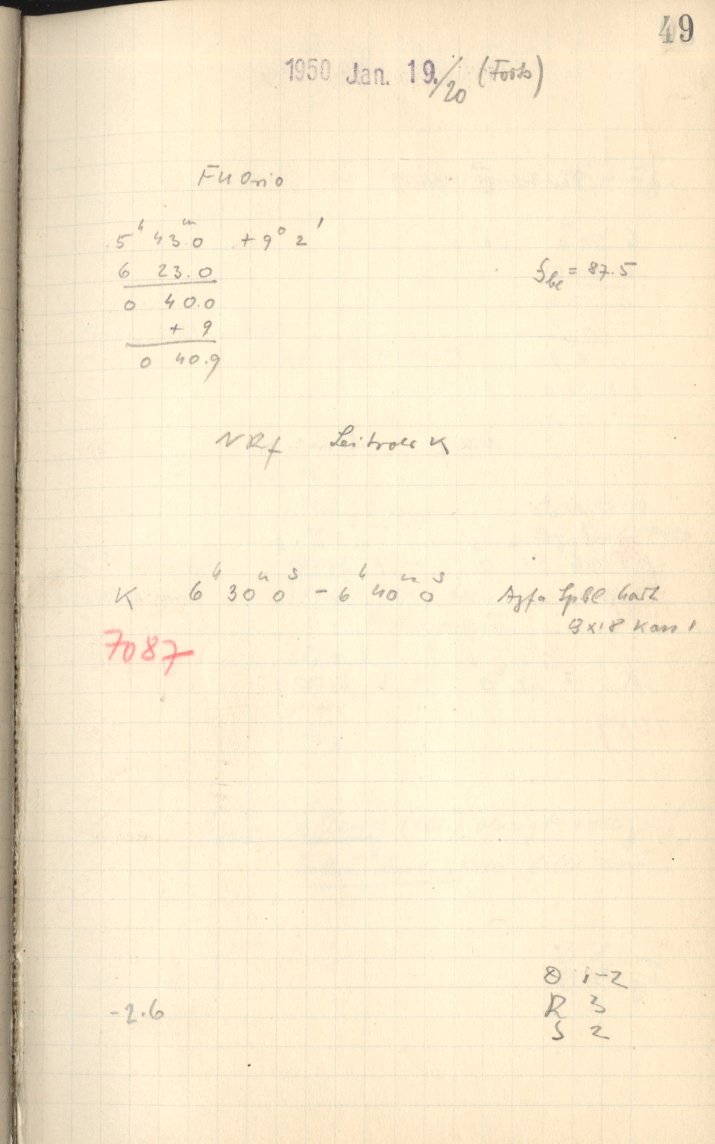 49
1950 Jan. 19./20 (Forts)
FU Orio
5ʰ 43.ᵐ0 + 9° 2'
6 23.0
0 40.0
+ 9
0 40.9
S_be = 87.5
K 6ʰ 30ᵐ 0ˢ – 6ʰ 40ᵐ 0ˢ Agfa Spbl hart
9x18 Kass 1
7087
-2.6
1-2
R 3
S 2